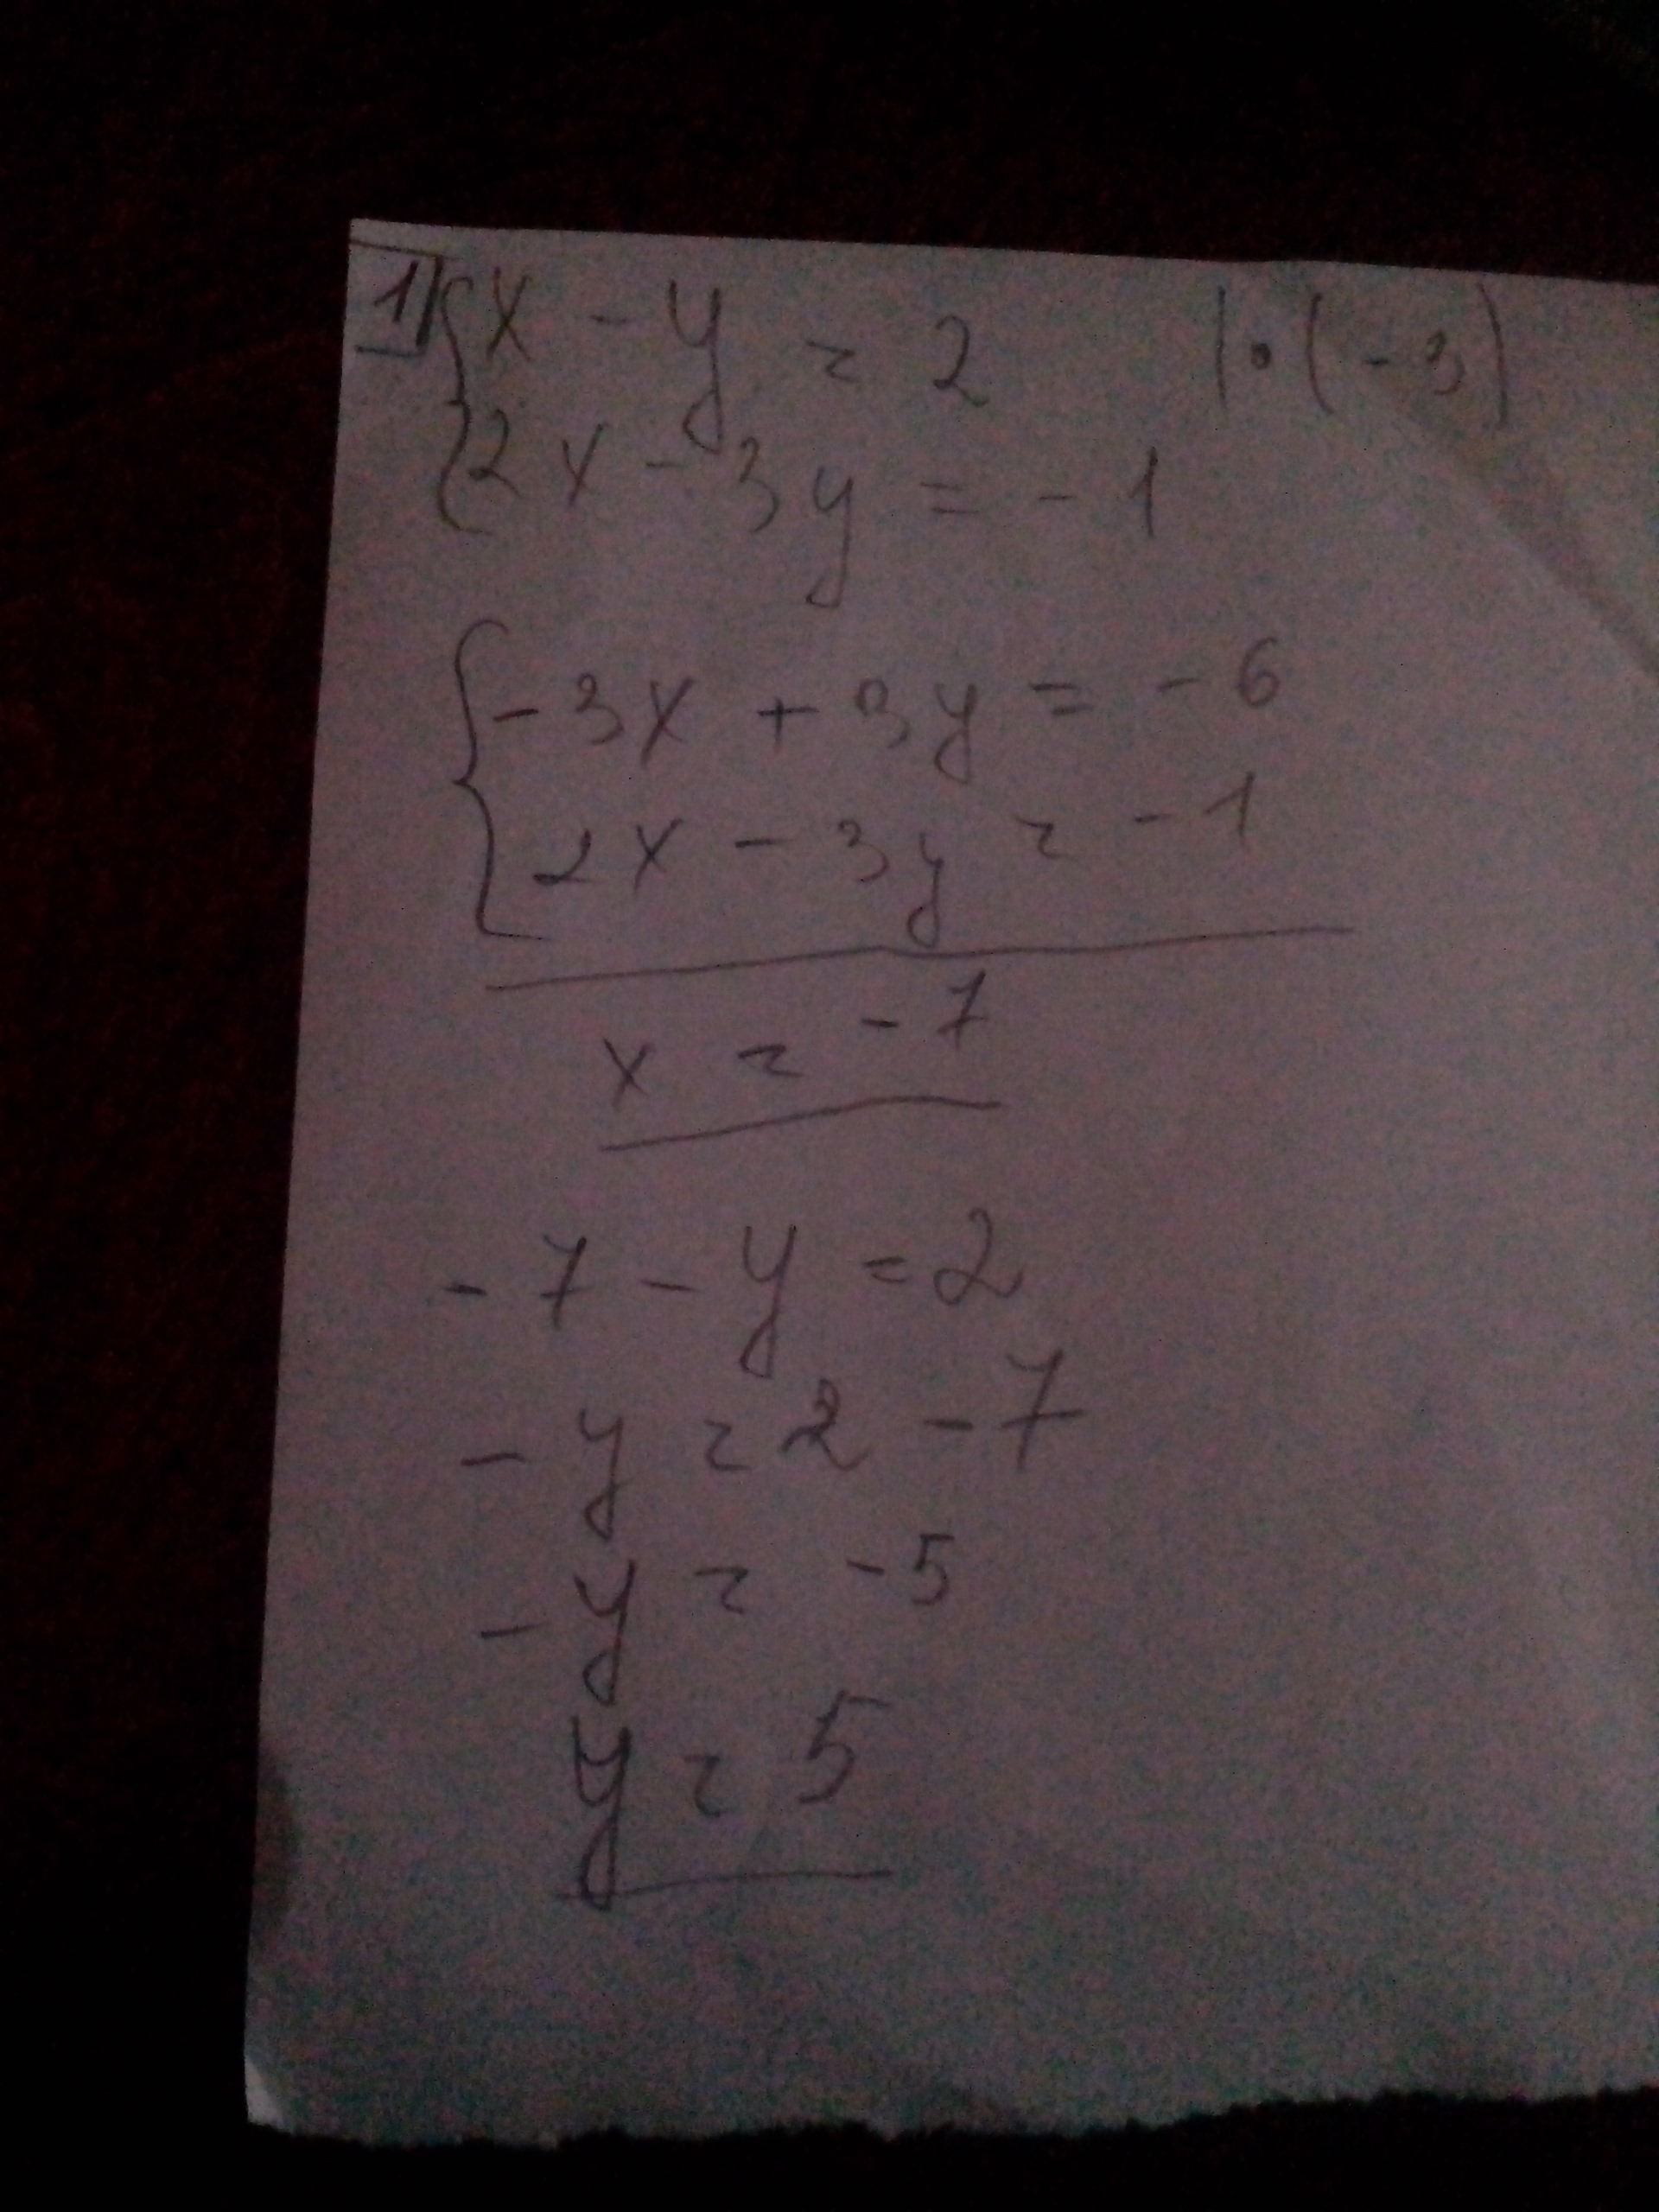 1) { x - y = 2 | · (-3)
2x - 3y = -1
{ -3x + 3y = -6
2x - 3y = -1
x = -7
-7 - y = 2
-y = 2 - 7
-y = -5
y = 5